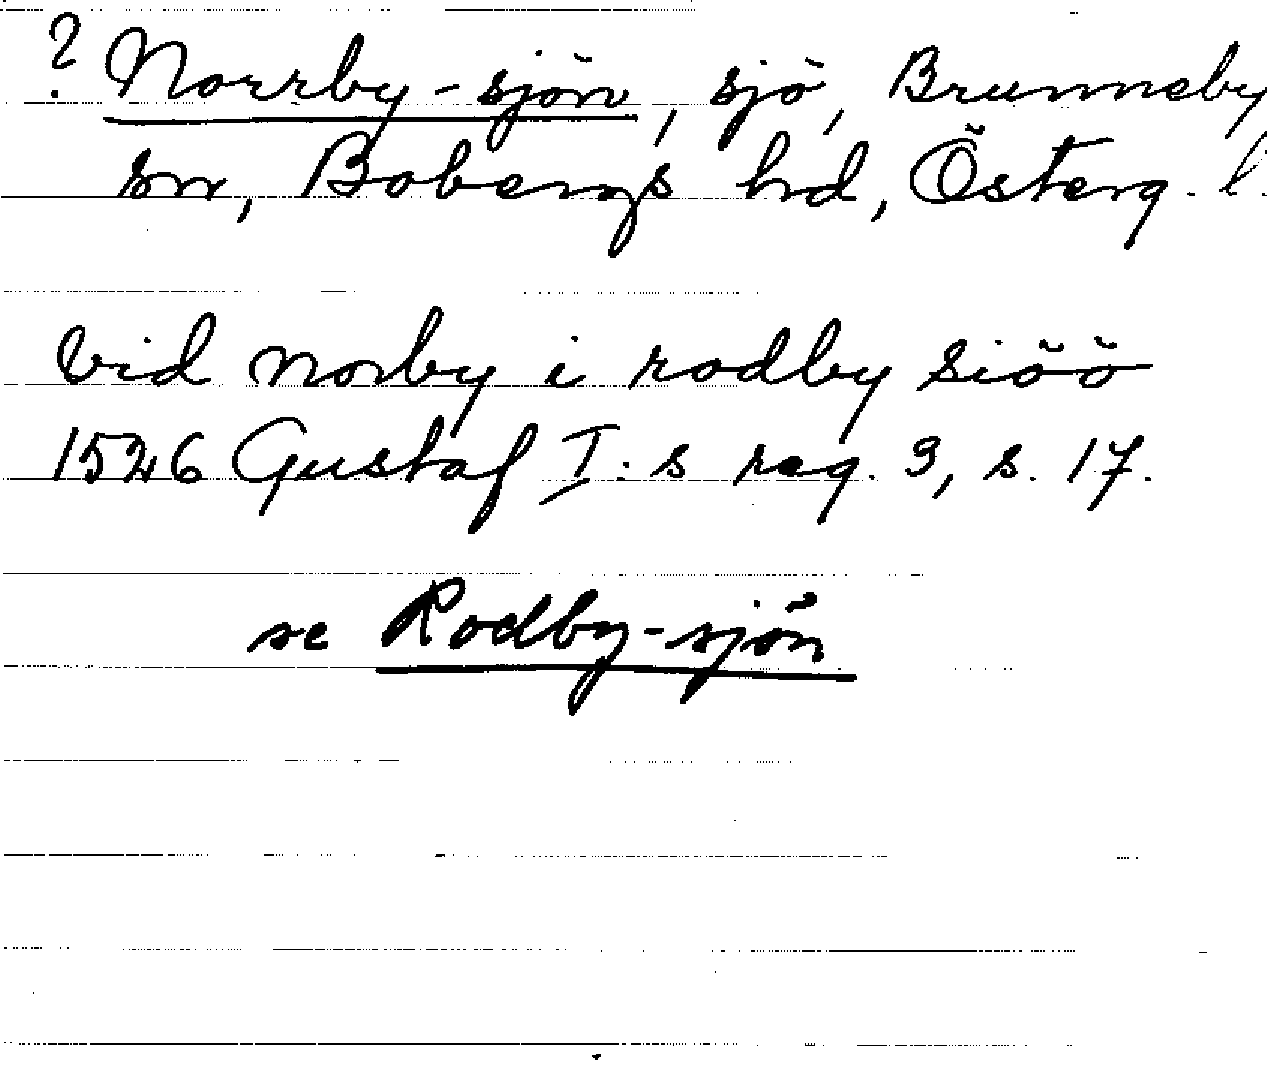 ? Norrby-sjön, sjö, Brunneby
sn, Bobergs hd, Österg. l.
vid norby i rodby siöö
1526 Gustaf I:s reg. 3, s. 17.
se Rodby-sjön